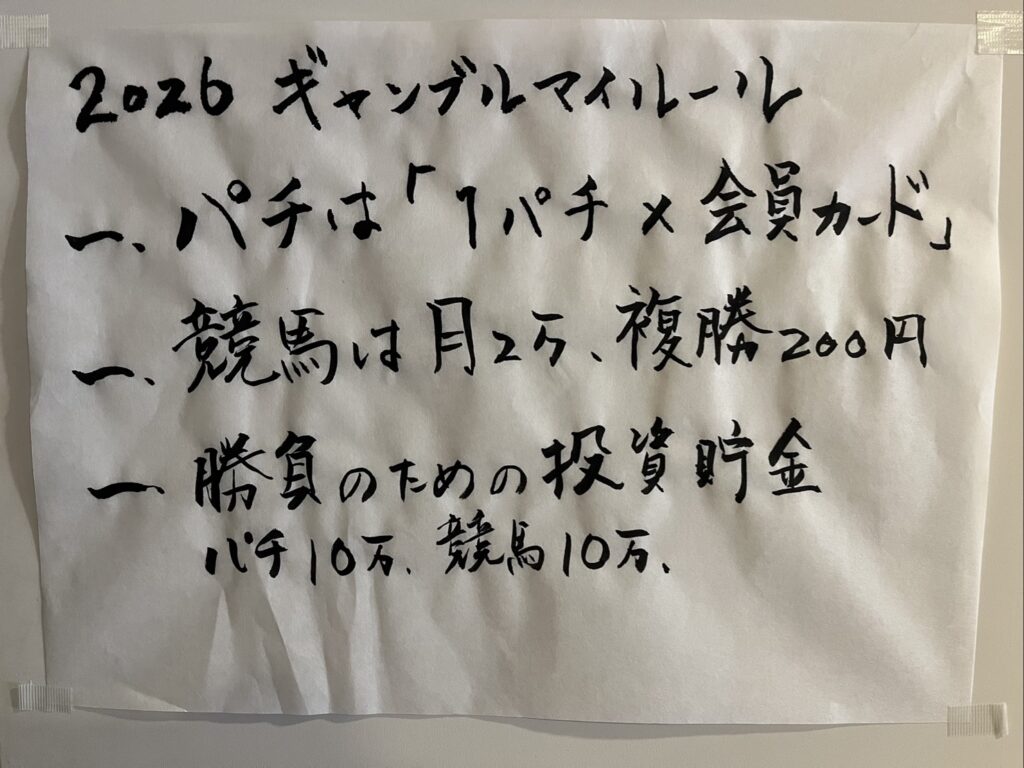 2026 ギャンブルマイルール
一、パチは「1パチ×会員カード」
一、競馬は月2万、複勝200円
一 勝負のための投資貯金
パチ10万、競馬10万、